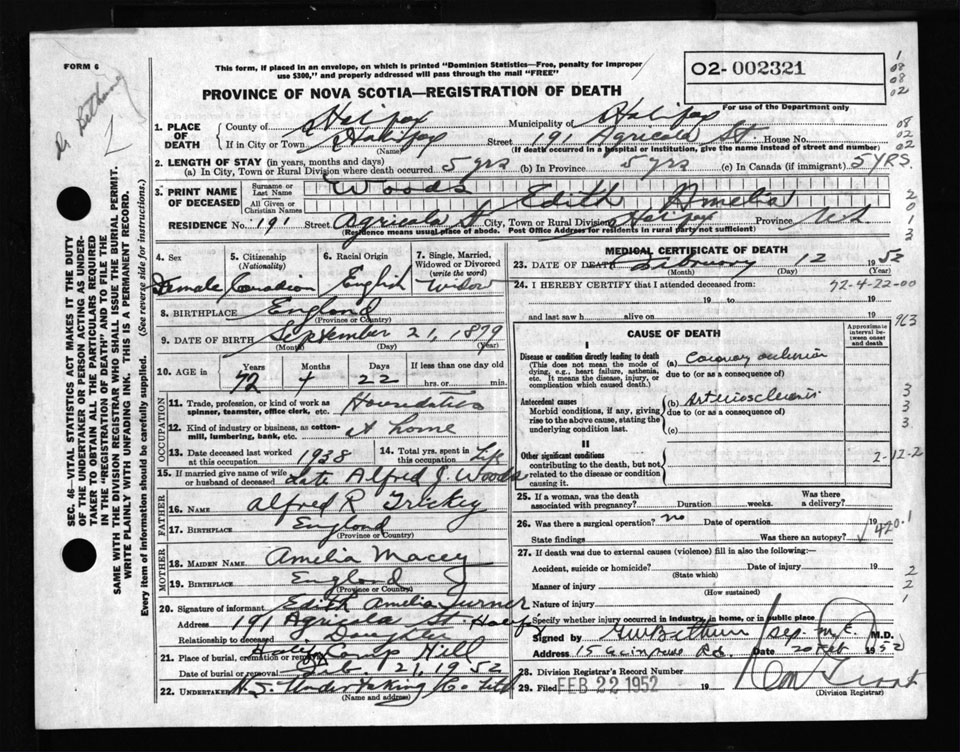 FORM 6
Dr. Bethune
1
This form, if placed in an envelope, on which is printed "Dominion Statistics—Free, penalty for improper
use $300," and properly addressed will pass through the mail "FREE"
PROVINCE OF NOVA SCOTIA—REGISTRATION OF DEATH
02-002321
For use of the Department only
1
08
08
02
1. PLACE OF DEATH
County of Halifax Municipality of Halifax
If in City or Town Halifax Street 191 Agricola St House No.
(Name) (If death occurred in a hospital or institution, give the name instead of street and number)
08
02
02
2. LENGTH OF STAY (in years, months and days)
(a) In City, Town or Rural Division where death occurred 5 yrs (b) In Province 5 yrs (c) In Canada (if immigrant) 5 YRS.
3. PRINT NAME OF DECEASED
Surname or Last Name Woods
All Given or Christian Names Edith Amelia
RESIDENCE No. 191 Street Agricola St City, Town or Rural Division Halifax Province N.S.
(Residence means usual place of abode. Post Office Address for residents in rural parts not sufficient)
2
0
1
3
SEC. 46—VITAL STATISTICS ACT MAKES IT THE DUTY
OF THE UNDERTAKER OR PERSON ACTING AS UNDER-
TAKER TO OBTAIN ALL THE PARTICULARS REQUIRED
IN THE "REGISTRATION OF DEATH" AND TO FILE THE
SAME WITH THE DIVISION REGISTRAR WHO SHALL ISSUE THE BURIAL PERMIT.
WRITE PLAINLY WITH UNFADING INK. THIS IS A PERMANENT RECORD.
Every item of information should be carefully supplied. (See reverse side for instructions.)
4. Sex
Female
5. Citizenship
(Nationality)
Canadian
6. Racial Origin
English
7. Single, Married,
Widowed or Divorced
(write the word)
Widow
8. BIRTHPLACE England
(Province or Country)
9. DATE OF BIRTH September 21, 1879
(Month) (Day) (Year)
10. AGE in Years Months Days If less than one day old
72 4 22 hrs. or min.
OCCUPATION
11. Trade, profession, or kind of work as
spinner, teamster, office clerk, etc.
12. Kind of industry or business, as cotton-
mill, lumbering, bank, etc. At home
13. Date deceased last worked
at this occupation 1938
14. Total yrs. spent in
this occupation Life
15. If married give name of wife
or husband of deceased late Alfred J. Woods
FATHER
16. NAME Alfred R Trickey
17. BIRTHPLACE England
(Province or Country)
MOTHER
18. MAIDEN NAME Amelia Macey
19. BIRTHPLACE England
(Province or Country)
20. Signature of informant Edith Amelia Turner
Address 191 Agricola St. Halifax
Relationship to deceased Daughter
21. Place of burial, cremation or removal Camp Hill
Date of burial or removal Feb 21, 1952
22. Undertaker N.S. Undertaking Co. Ltd
(Name and address)
MEDICAL CERTIFICATE OF DEATH
23. DATE OF DEATH February 12 1952
(Month) (Day) (Year)
24. I HEREBY CERTIFY that I attended deceased from: 72-4-22-00
19 to 19
and last saw h alive on 19
963
CAUSE OF DEATH
Approximate interval between onset and death
I
Disease or condition directly leading to death
(This does not mean the mode of
dying, e.g., heart failure, asthenia,
etc. It means the disease, injury, or
complication which caused death.)
(a) Coronary occlusion
due to (or as a consequence of)
Antecedent causes
Morbid conditions, if any, giving
rise to the above cause, stating the
underlying condition last.
(b) Arteriosclerosis
due to (or as a consequence of)
(c)
3
3
3
II
Other significant conditions
contributing to the death, but not
related to the disease or condition
causing it.
2-12-2
25. If a woman, was the death
associated with pregnancy? Duration weeks. Was there
a delivery?
26. Was there a surgical operation? no Date of operation 19
State findings Was there an autopsy?
420.1
27. If death was due to external causes (violence) fill in also the following:—
Accident, suicide or homicide? Date of injury 19
(State which)
Manner of injury
(How sustained)
Nature of injury
2
2
1
Specify whether injury occurred in industry, in home, or in public place.
Signed by M.D.
Address 15 Rd. Date 20 Feb 1952
28. Division Registrar's Record Number
29. Filed FEB 22 1952 19
(Division Registrar)